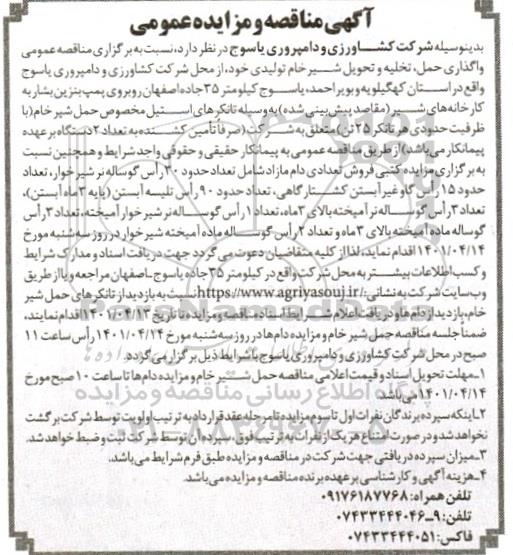 آگهی مناقصه و مزایده عمومی
بدینوسیله شرکت کشاورزی و دامپروری یاسوج در نظر دارد، نسبت به برگزاری مناقصه عمومی
واگذاری حمل، تخلیه و تحویل شیر خام تولیدی خود، از محل شرکت کشاورزی و دامپروری یاسوج
واقع در استان کهگیلویه و بویراحمد، یاسوج کیلومتر ۳۵ جاده اصفهان روبروی پمپ بنزین بشار به
کارخانه‌های شیر (مقاصد پیش بینی شده) به وسیله تانکرهای استیل مخصوص حمل شیر خام (با
ظرفیت حدودی هر تانکر ۲۵ تن) متعلق به شرکت (صرفاً تأمین کشنده به تعداد ۲ دستگاه بر عهده
پیمانکار می‌باشد) از طریق مناقصه عمومی به پیمانکار حقیقی و حقوقی واجد شرایط و همچنین نسبت
به برگزاری مزایده کتبی فروش تعدادی دام مازاد شامل تعداد حدود ۴۰ رأس گوساله نر شیر خوار، تعداد
حدود ۱۵ رأس گاو غیر آبستن کشتارگاهی، تعداد حدود ۹۰ رأس تلیسه آبستن (پایه ۳ ماه آبستن)،
تعداد ۳ رأس گوساله نر آمیخته بالای ۳ ماه، تعداد ۱ رأس گوساله نر شیر خوار آمیخته، تعداد ۳ رأس
گوساله ماده آمیخته بالای ۳ ماه و تعداد ۲ رأس گوساله ماده آمیخته شیر خوار در روز سه شنبه مورخ
۱۴۰۱/۰۴/۱۴ اقدام نماید، لذا از کلیه متقاضیان دعوت می‌گردد جهت دریافت اسناد و مدارک شرایط
و کسب اطلاعات بیشتر به محل شرکت واقع در کیلومتر ۳۵ جاده یاسوج ـ اصفهان مراجعه و یا از طریق
وب سایت شرکت به نشانی: https://www.agriyasouj.ir نسبت به بازدید از تانکرهای حمل شیر
خام، بازدید از دام‌ها و دریافت اعلام شرایط اسناد مناقصه مزایده تا تاریخ ۱۴۰۱/۰۴/۱۳ اقدام نمایند،
ضمناً جلسه مناقصه حمل شیر خام و مزایده دام‌ها در روز سه شنبه مورخ ۱۴۰۱/۰۴/۱۴ رأس ساعت ۱۱
صبح در محل شرکت کشاورزی و دامپروری یاسوج با شرایط ذیل برگزار می‌گردد.
۱ـ مهلت تحویل اسناد و قیمت اعلامی مناقصه حمل شیر خام و مزایده دام‌ها تا ساعت ۱۰ صبح مورخ
۱۴۰۱/۰۴/۱۴ می‌باشد.
۲ـ اینکه سپرده برندگان نفرات اول تا سوم مزایده تا مرحله عقد قرارداد به ترتیب اولویت توسط شرکت برگشت
نخواهد شد و در صورت امتناع هر یک از نفرات به ترتیب فوق، سپرده آن توسط شرکت ثبت و ضبط خواهد شد.
۳ـ میزان سپرده دریافتی جهت شرکت در مناقصه و مزایده طبق فرم شرایط می‌باشد.
۴ـ هزینه آگهی و کارشناسی بر عهده برنده مناقصه و مزایده می‌باشد.
تلفن همراه: ۰۹۱۷۶۱۸۷۷۶۸
تلفن: ۹ـ۰۷۴۳۳۴۴۴۰۴۶
فاکس: ۰۷۴۳۳۴۴۴۰۵۱